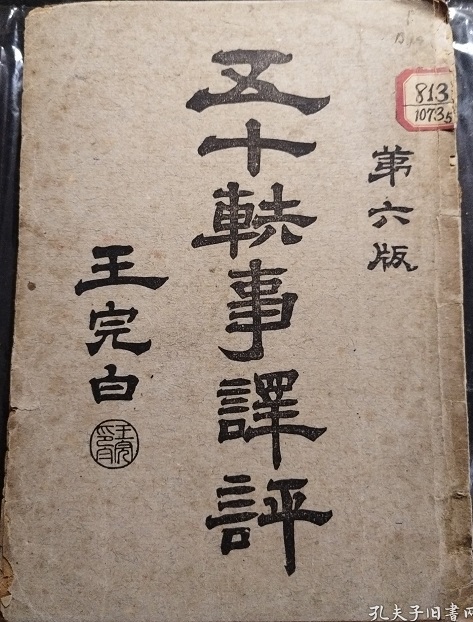 813
10735
第六版
五十軼事譯評
王完白
孔夫子旧書网